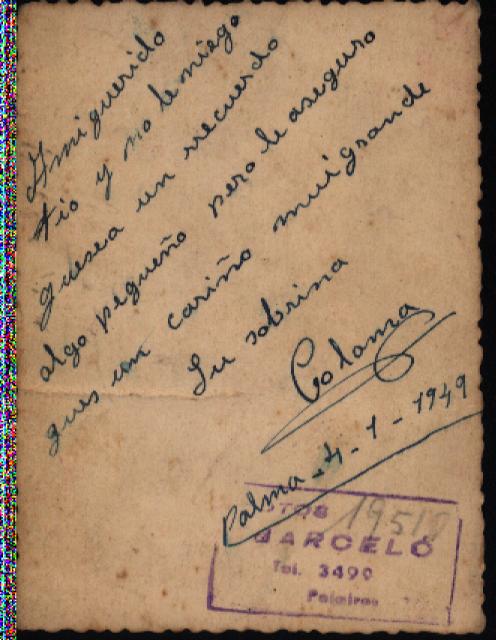 A mi querido
tio y no le niego
quesea un rrecuerdo
algo pequeño pero le aseguro
ques un cariño mui grande
Su sobrina
Coloma
Palma-4-1-1949
BARCELÓ
Tel. 3490